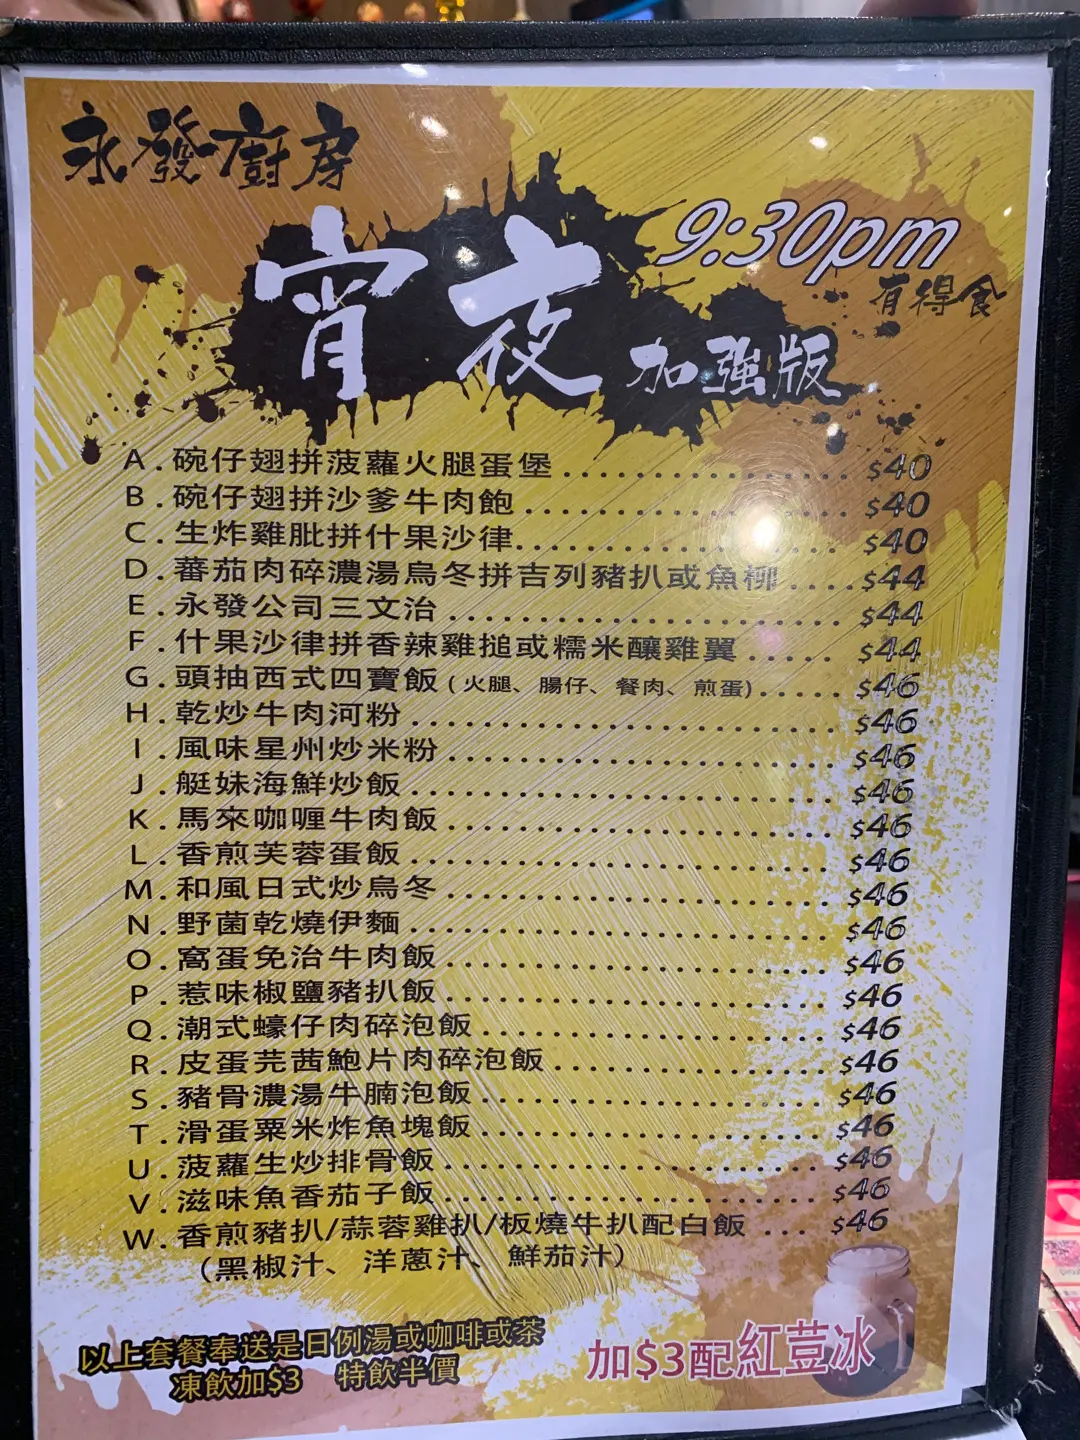 永發廚房
宵夜 加強版
9:30pm
有得食
A.碗仔翅拼菠蘿火腿蛋堡..................$40
B.碗仔翅拼沙爹牛肉飽..................$40
C.生炸雞肶拼什果沙律..................$40
D.蕃茄肉碎濃湯烏冬拼吉列豬扒或魚柳....$44
E.永發公司三文治......................$44
F.什果沙律拼香辣雞搥或糯米釀雞翼.....$44
G.頭抽西式四寶飯(火腿、腸仔、餐肉、煎蛋).....$46
H.乾炒牛肉河粉.......................$46
I.風味星州炒米粉.....................$46
J.艇妹海鮮炒飯.......................$46
K.馬來咖喱牛肉飯.....................$46
L.香煎芙蓉蛋飯.......................$46
M.和風日式炒烏冬.....................$46
N.野菌乾燒伊麵.......................$46
O.窩蛋免治牛肉飯.....................$46
P.惹味椒鹽豬扒飯.....................$46
Q.潮式蠔仔肉碎泡飯...................$46
R.皮蛋芫茜鮑片肉碎泡飯...............$46
S.豬骨濃湯牛腩泡飯...................$46
T.滑蛋粟米炸魚塊飯...................$46
U.菠蘿生炒排骨飯.....................$46
V.滋味魚香茄子飯.....................$46
W.香煎豬扒/蒜蓉雞扒/板燒牛扒配白飯...$46
(黑椒汁、洋蔥汁、鮮茄汁)
以上套餐奉送是日例湯或咖啡或茶
凍飲加$3 特飲半價
加$3配紅荳冰